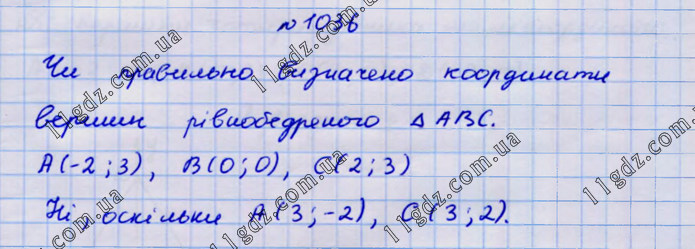 №1036
Чи правильно визначено координати
вершин рівнобедреного △ABC.
A(-2;3), B(0;0), C(2;3)
Ні, оскільки A(3;-2), C(3;2).
11gdz.com.ua
11gdz.com.ua
11gdz.com.ua
11gdz.com.ua
11gdz.com.ua
11gdz.com.ua